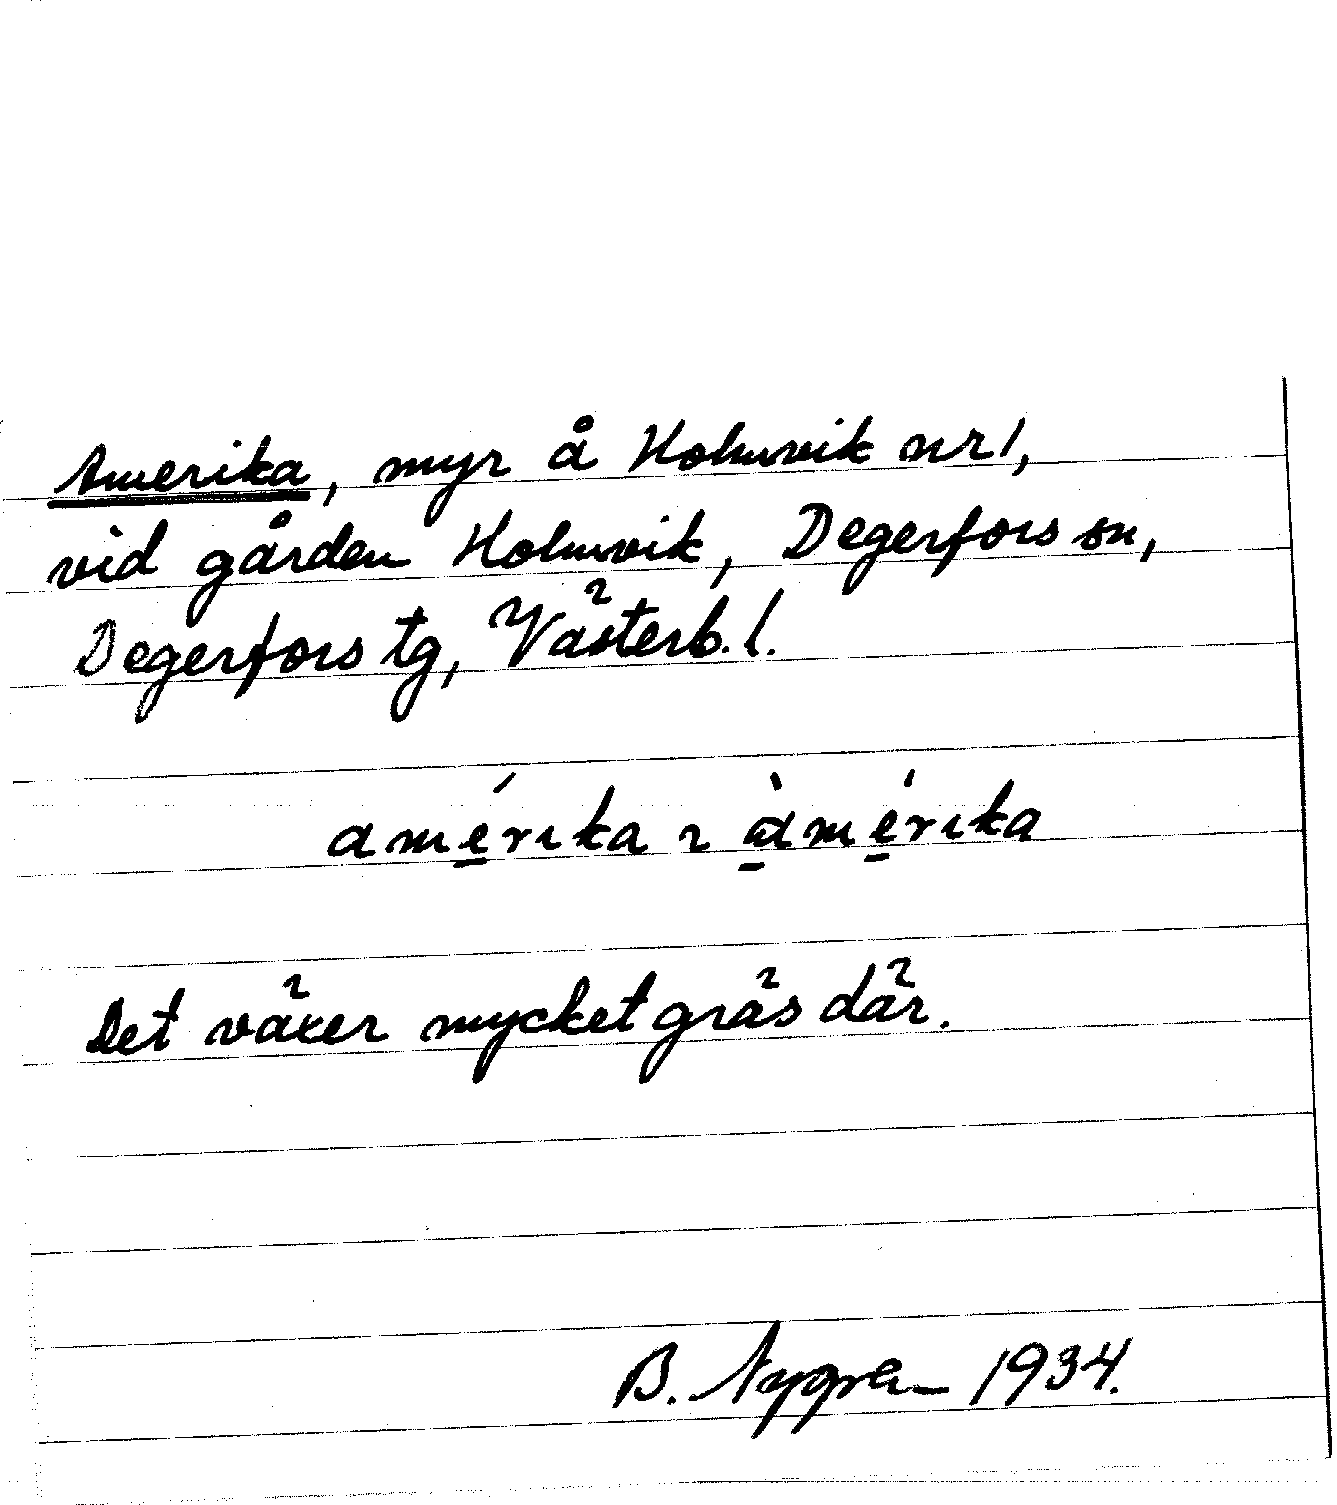 Amerika, myr å Holmvik nr 1,
vid gården Holmvik, Degerfors sn,
Degerfors tg, Västerb. l.
amérika ı àmérika
Det växer mycket gräs där.
B. Nygren 1934.